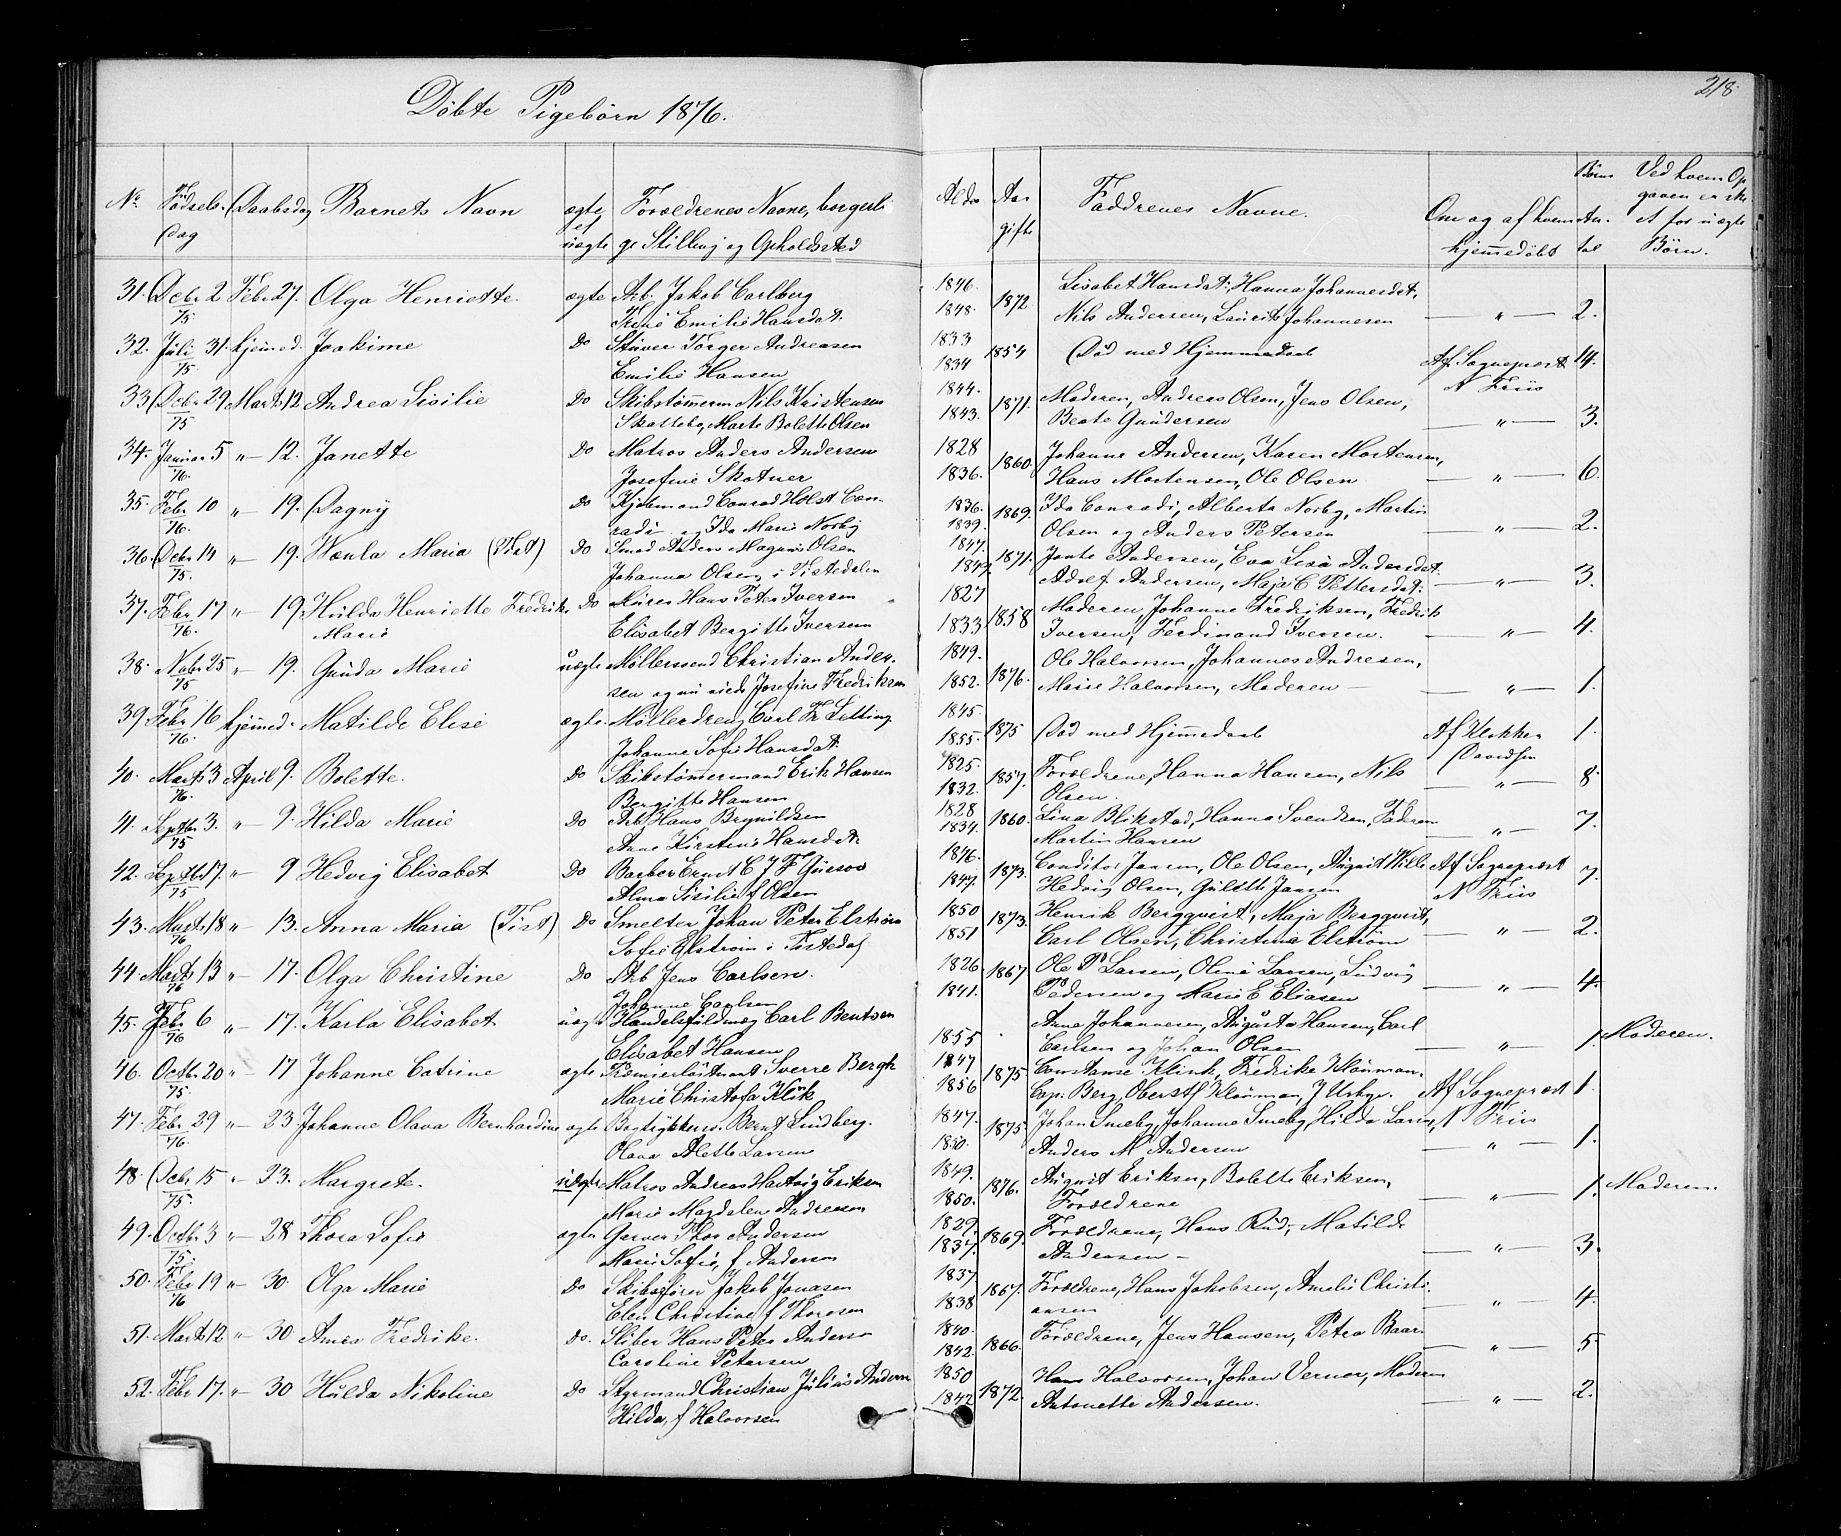 Döbte Pigebörn 1876.
218.
No Födsels Dag Daabsdag Barnets Navn ægte el uægte Forældrenes Navne, borgerli
ge Stilling og Opholdssted
Alder Aar gifte Faddrenes Navne. Om og af hvem hjemmedöbt Börns Antal Ved hvem Op
gaven er ske
et for uægte
Börn.
31. Decbr 2 75 Febr 27. Olga Henriette. ægte Arb. Jakob Carlberg 1846. 1872. Lisabet Hansdat, Hanna Johannesdat,
Emilie Hansdat. 1848. Nils Andersen, Laurits Johannesen — „ — 2.
32. Juli 31. 75 hjemmed. Joakime Do Stuver Torger Andreasen 1833 1854 Död med Hjemmedaab Af Sogneprest 14.
Emilie Hansen 1834 N Friis
33 Decbr 29 75 Marts 12 Andrea Sisilie Do Skibstömerm Nils Kristensen 1844. 1871. Moderen, Andreas Olsen, Jens Olsen,
Skolleby, Marte Bolette Olsen 1843. Beate Gundersen — „ — 3.
34. Januar 5 76. „ — 12. Janette Do Matros Anders Andersen 1828 1860. Johanne Andersen, Karen Mortensen,
Josefine Skotner 1836. Hans Mortensen, Ole Olsen — „ — 6.
35. Febr 10 76. „ — 19. Dagny Do Kjöbmand Conrad Holst Con- 1836. 1869. Ida Conradi, Alberta Norby, Martin
radi og Ida Marie Norby 1839. Olsen og Anders Petersen — „ — 2.
36. Decbr 14 75. „ — 19. Wenla Maria (Tist) Do Smed Anders Magnus Olsen 1847. 1871. Andersen, Eva Lisa Andersdat.
Johanna Olsen i Tistedalen 1849. Adolf Andersen, Maja C Pettersdat. — „ — 3.
37. Febr 17 76. „ — 19. Hulda Henriette Fredrik. Do Murer Hans Peter Iversen 1827 1858 Moderen, Johanne Fredriksen, Fredrik
Marie Elisabet Bergitte Iversen 1833 Iversen, Ferdinand Iversen. — „ — 4.
38. Novbr 25 75 „ — 19. Gunda Marie uægte Möllersvend Christian Ander- 1849. 1876. Ole Halvorsen, Johannes Andresen,
sen og Josefine Fredriksen 1852. Marie Halvorsen, Moderen — — „ — 1.
39. Febr 16 76. hjemmed. Matilde Elise ægte. Möllerdreng Carl Fr Letting 1845 1875 Död med Hjemmedaab Af Klokker 1.
Johanne Sofie Hansdat. 1855. Davidsen
40. Marts 3 76 April 9. Bolette. Do Skibstömmermand Erik Hansen 1825. 1857. Forældrene, Hanna Hansen, Nils
Bergitte Hansen 1832. Olsen. — „ — 8.
41. Septbr 3. 75 „ — 9. Hilda Marie Do Arb Hans Brynildsen 1828 1860. Lina Blikstad, Hanna Svendsen, Fadren
Anne Kirstine Hansdat. 1834. Martin Hansen — „ — 7.
42. Septbr 17. 75 „ — 9 Hedvig Elisabet Do Barber Ernst C J F 1846. 1873. Conditor Jansen, Ole Olsen, August Wille Af Sogneprest 7.
Alma Sisilie f. Olsen 1847. Hedvig Olsen, Jansen N Friis
43. Marts 18 76 „ — 13. Anna Maria (Tist) Do Smelter Johan Peter Elström 1850 1873. Henrik Bergqvist, Maja Bergqvist,
Sofie Elström i Tistedal 1851 Carl Olsen, Christina Elström — „ — 2.
44. Marts 13 76 „ — 17. Olga Christine Do Arb Jens Carlsen. 1826. 1867 Ole P Larsen, Oline Larsen, Ludvig
Johanne Carlsen 1841. Pedersen og Marie E Eliasen — „ — 4.
45. Febr 6 76 „ — 17. Karla Elisabet uægte Handelsfuldmæg Carl Bentsen Anne Johannesen, Augusta Hansen, Carl
Elisabet Hansen 1855 Carlsen og Johan Olsen — „ — 1. Moderen.
46. Octbr. 20 75. „ — 17 Johanne Catrine ægte Premierlöitnant Sverre Bergh 1847 1875 Constanse Klink, Fredrike Klouman.
Marie Christofa Klink 1856 Cap. Berg, Oberstl Klouman, J Urbye. Af Sogneprest 1.
47. Febr 29 76. „ — 23 Johanne Olava Bernhardine ægte Bogtykkersv. Bernt Lindberg. 1847. 1875. Johan Smeby, Johanne Smeby, Hilda Larsen, N Friis
Olava Alette Larsen 1850. Anders M Andersen „ — 1.
48. Decbr 15 75. „ — 23. Margrete. uægte Matros Andreas Hartvig Eriksen 1849. 1876. August Eriksen, Bolette Eriksen,
Marie Magdalene Andreasen 1850. Forældrene — „ — 1. Moderen.
49. Octbr 3 75. „ — 28 Thora Sofie ægte Garver Thor Andersen 1829. 1869. Forældrene, Hans Rud, Matilde
Marie Sofie, f. Andersen 1837. Andersen — — „ — 3.
50. Febr 19 76 „ — 30. Olga Marie Do Skibsförer Jakob Jonasen 1837 1867. Forældrene, Hans Jakobsen, Amelie Christi
Elen Christine f Thoresen 1838 ansen — „ — 4.
51. Marts 12 „ — 30 Anna Fredrike. Do. Sliber Hans Peter Anderso 1840. 1866. Forældrene, Jens Hansen, Petra Baar-
Caroline Petersen 1842. — „ — 5
52. Febr 17. „ — 30 Hulda Nikoline Do Styrmand Christian Julius Andersen 1850 1872. Hans Halvorsen, Johan Verner, Moderen
Hilda, f Halvorsen 1842 Antonette Andersen. — „ — 2.